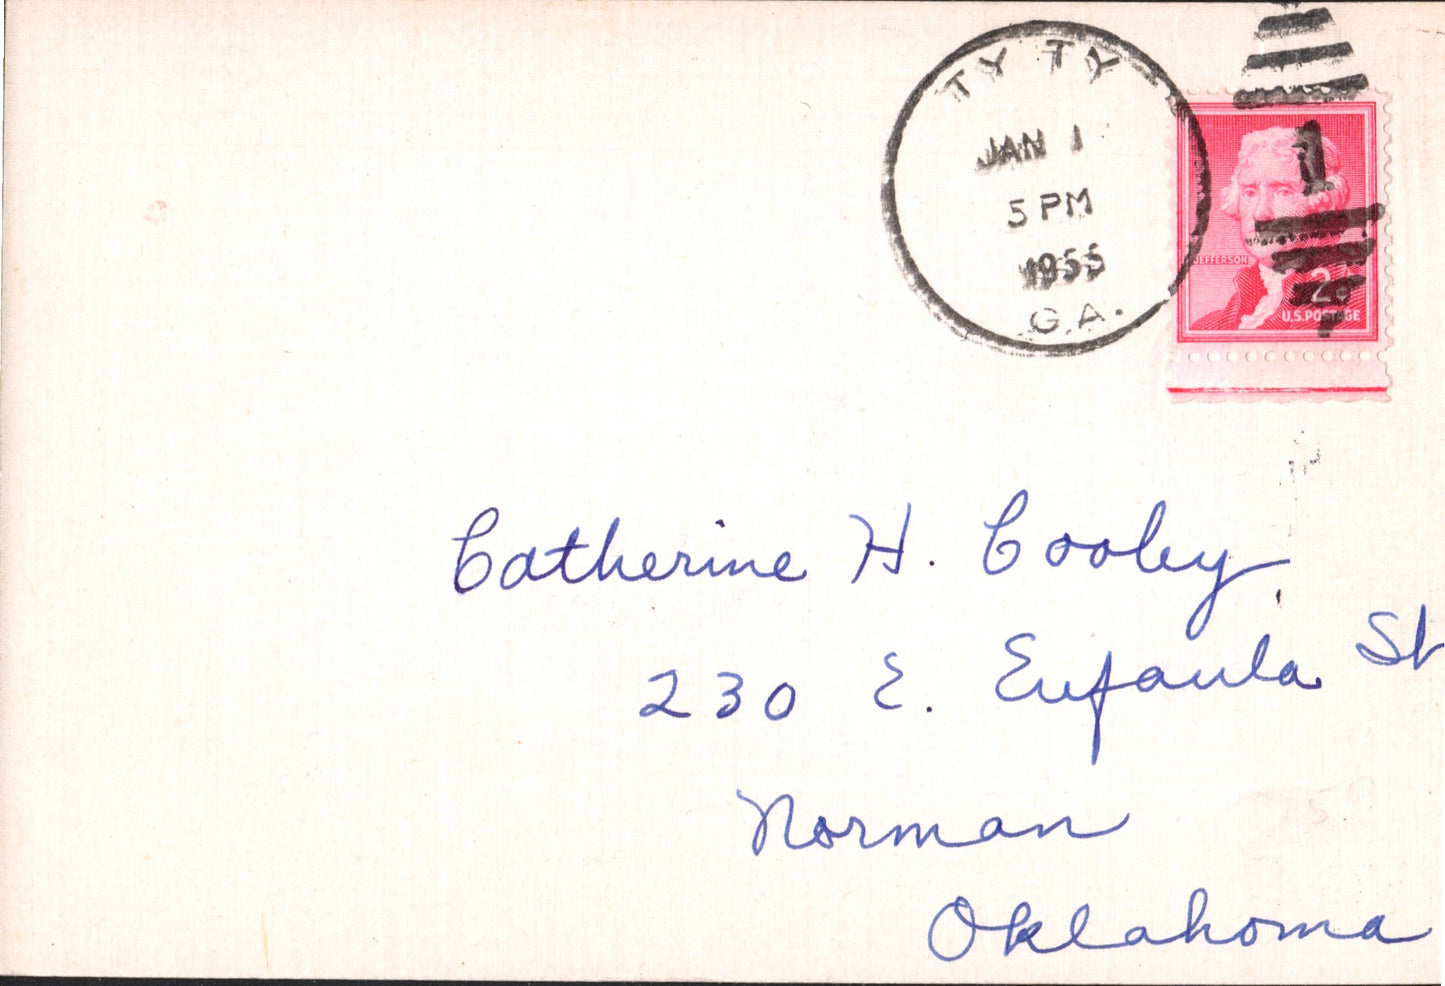 TY TY
JAN 1
5 PM
1955
G.A.
1
JEFFERSON
2¢
U.S.POSTAGE
Catherine H. Cooley
230 E. Eufaula St
Norman
Oklahoma